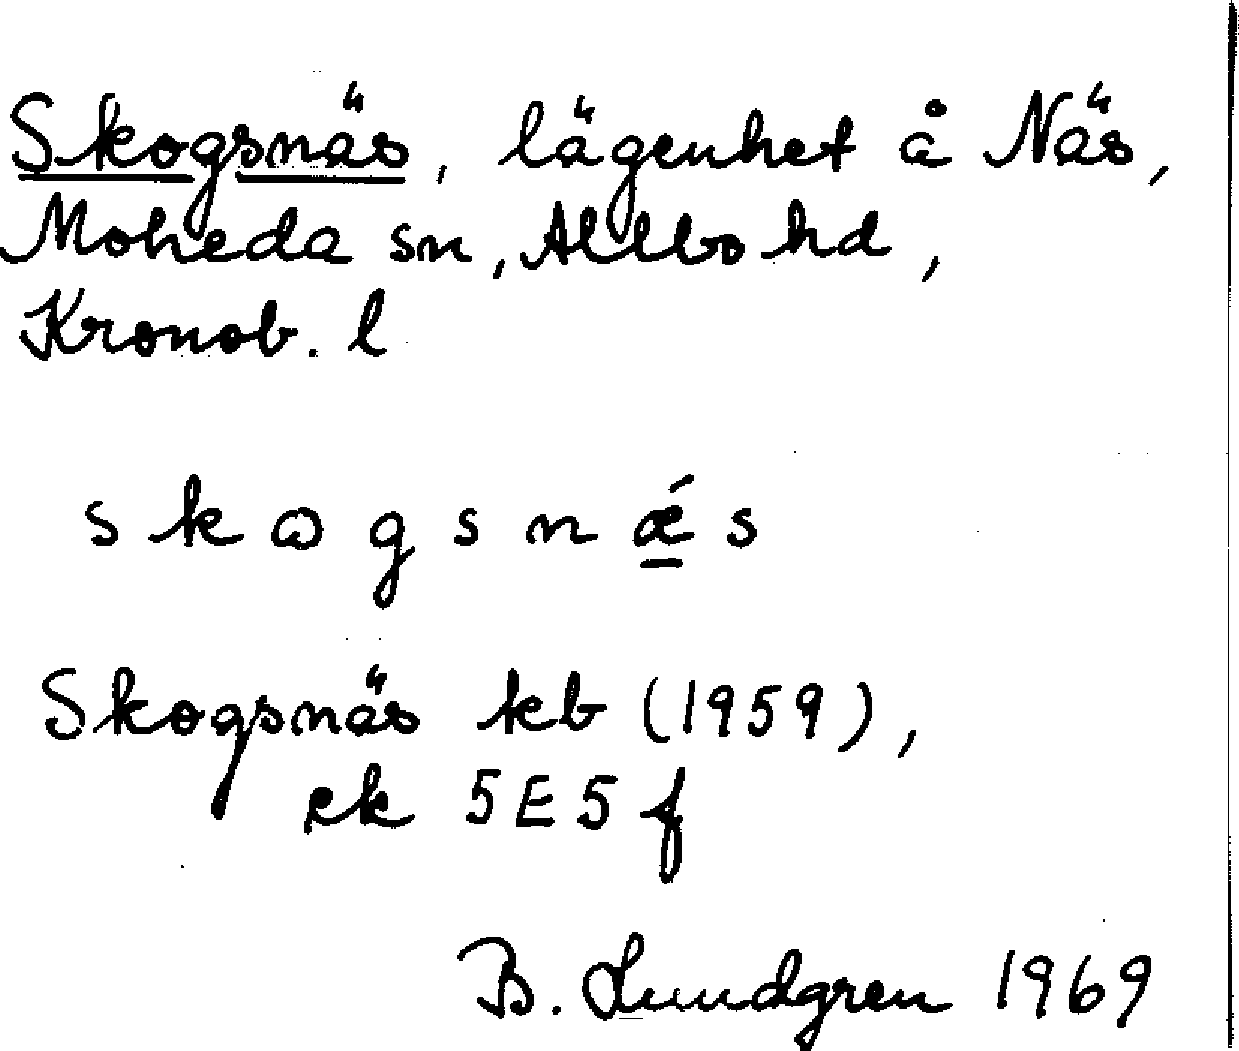 Skogsnäs, lägenhet å Näs,
Moheda sn, Allbo hd,
Kronob. l
s k ɷ g s n ǽ s
Skogsnäs kb (1959),
ek 5E5f
B. Lundgren 1969